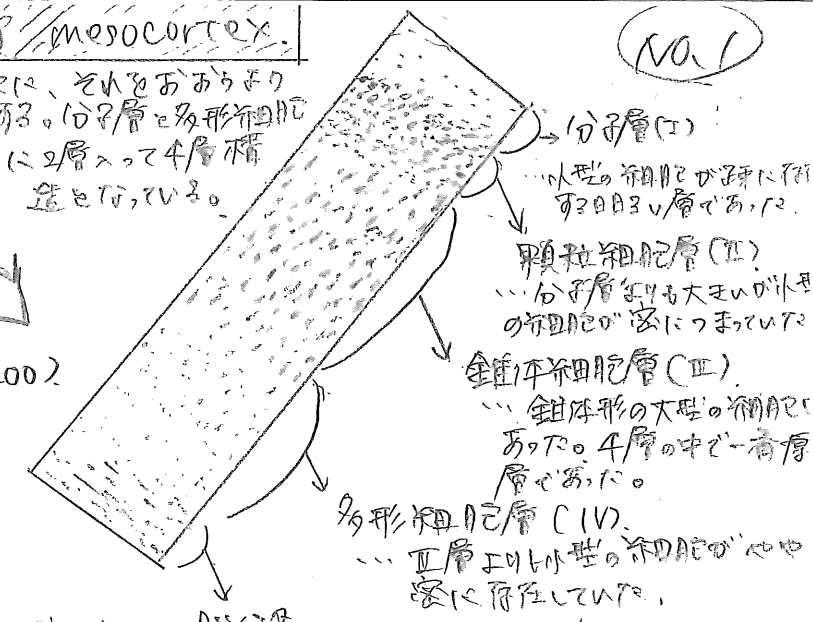 mesocortex.
No. 1
に、それをおおうより
ある。分子層と多形細胞
に2層入って4層構
造となっている。
分子層(I)
…小型の細胞が疎に存
する明るい層であった.
顆粒細胞層(II)
…分子層よりも大きいが小型
の細胞が密につまっていた
錐体細胞層(III).
… 錐体形の大型の細胞
あった。4層の中で一番厚
層であった。
00)
多形細胞層(IV).
… III層より小型の細胞がやや
密に存在していた.